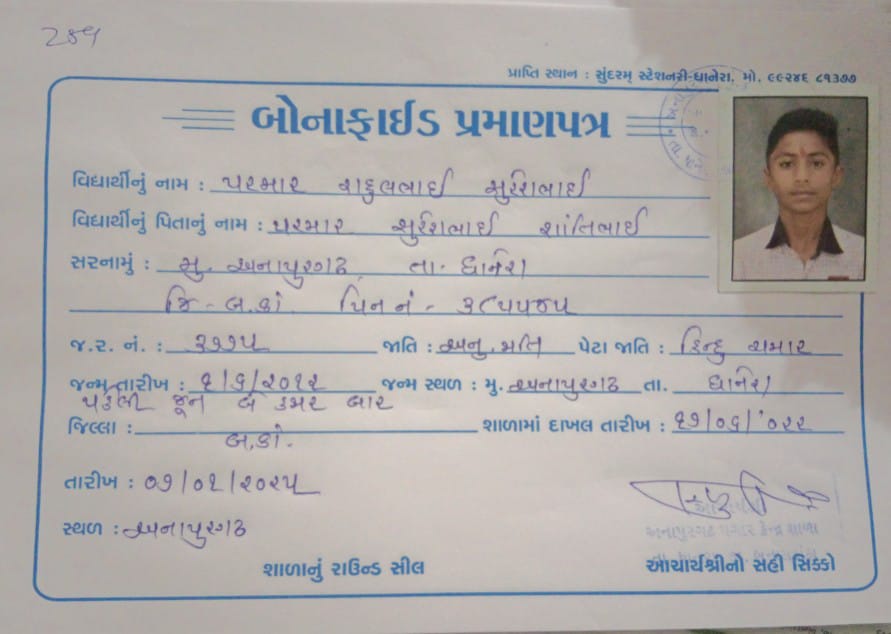 પ્રાપ્તિ સ્થાન : સુંદરમ્ સ્ટેશનરી-ધાનેરા. મો. ૯૯૨૪૬ ૮૧૩૭૭
બોનાફાઈડ પ્રમાણપત્ર
વિદ્યાર્થીનું નામ : પરમાર રાહુલભાઈ સુરેશભાઈ
વિદ્યાર્થીનું પિતાનું નામ : પરમાર સુરેશભાઈ શાંતિભાઈ
સરનામું : મુ. અનાપુરગઢ તા. ધાનેરા
જિ - બ.કાં પિન નં - ૩૮૫૫૪૫
જ.ર. નં. : ૩૭૭૫ જાતિ : અનુ.જાતિ પેટા જાતિ : હિન્દુ ચમાર
જન્મ તારીખ : ૧/૬/૨૦૧૨ જન્મ સ્થળ : મુ. અનાપુરગઢ તા. ધાનેરા
પહેલી જૂન બે હજાર બાર
જિલ્લા : બ.કાં. શાળામાં દાખલ તારીખ : ૧૭/૦૬/'૦૨૨
તારીખ : ૦૭/૦૧/૨૦૨૫
સ્થળ : અનાપુરગઢ
અનાપુરગઢ પગાર કેન્દ્ર શાળા
શાળાનું રાઉન્ડ સીલ આચાર્યશ્રીનો સહી સિક્કો